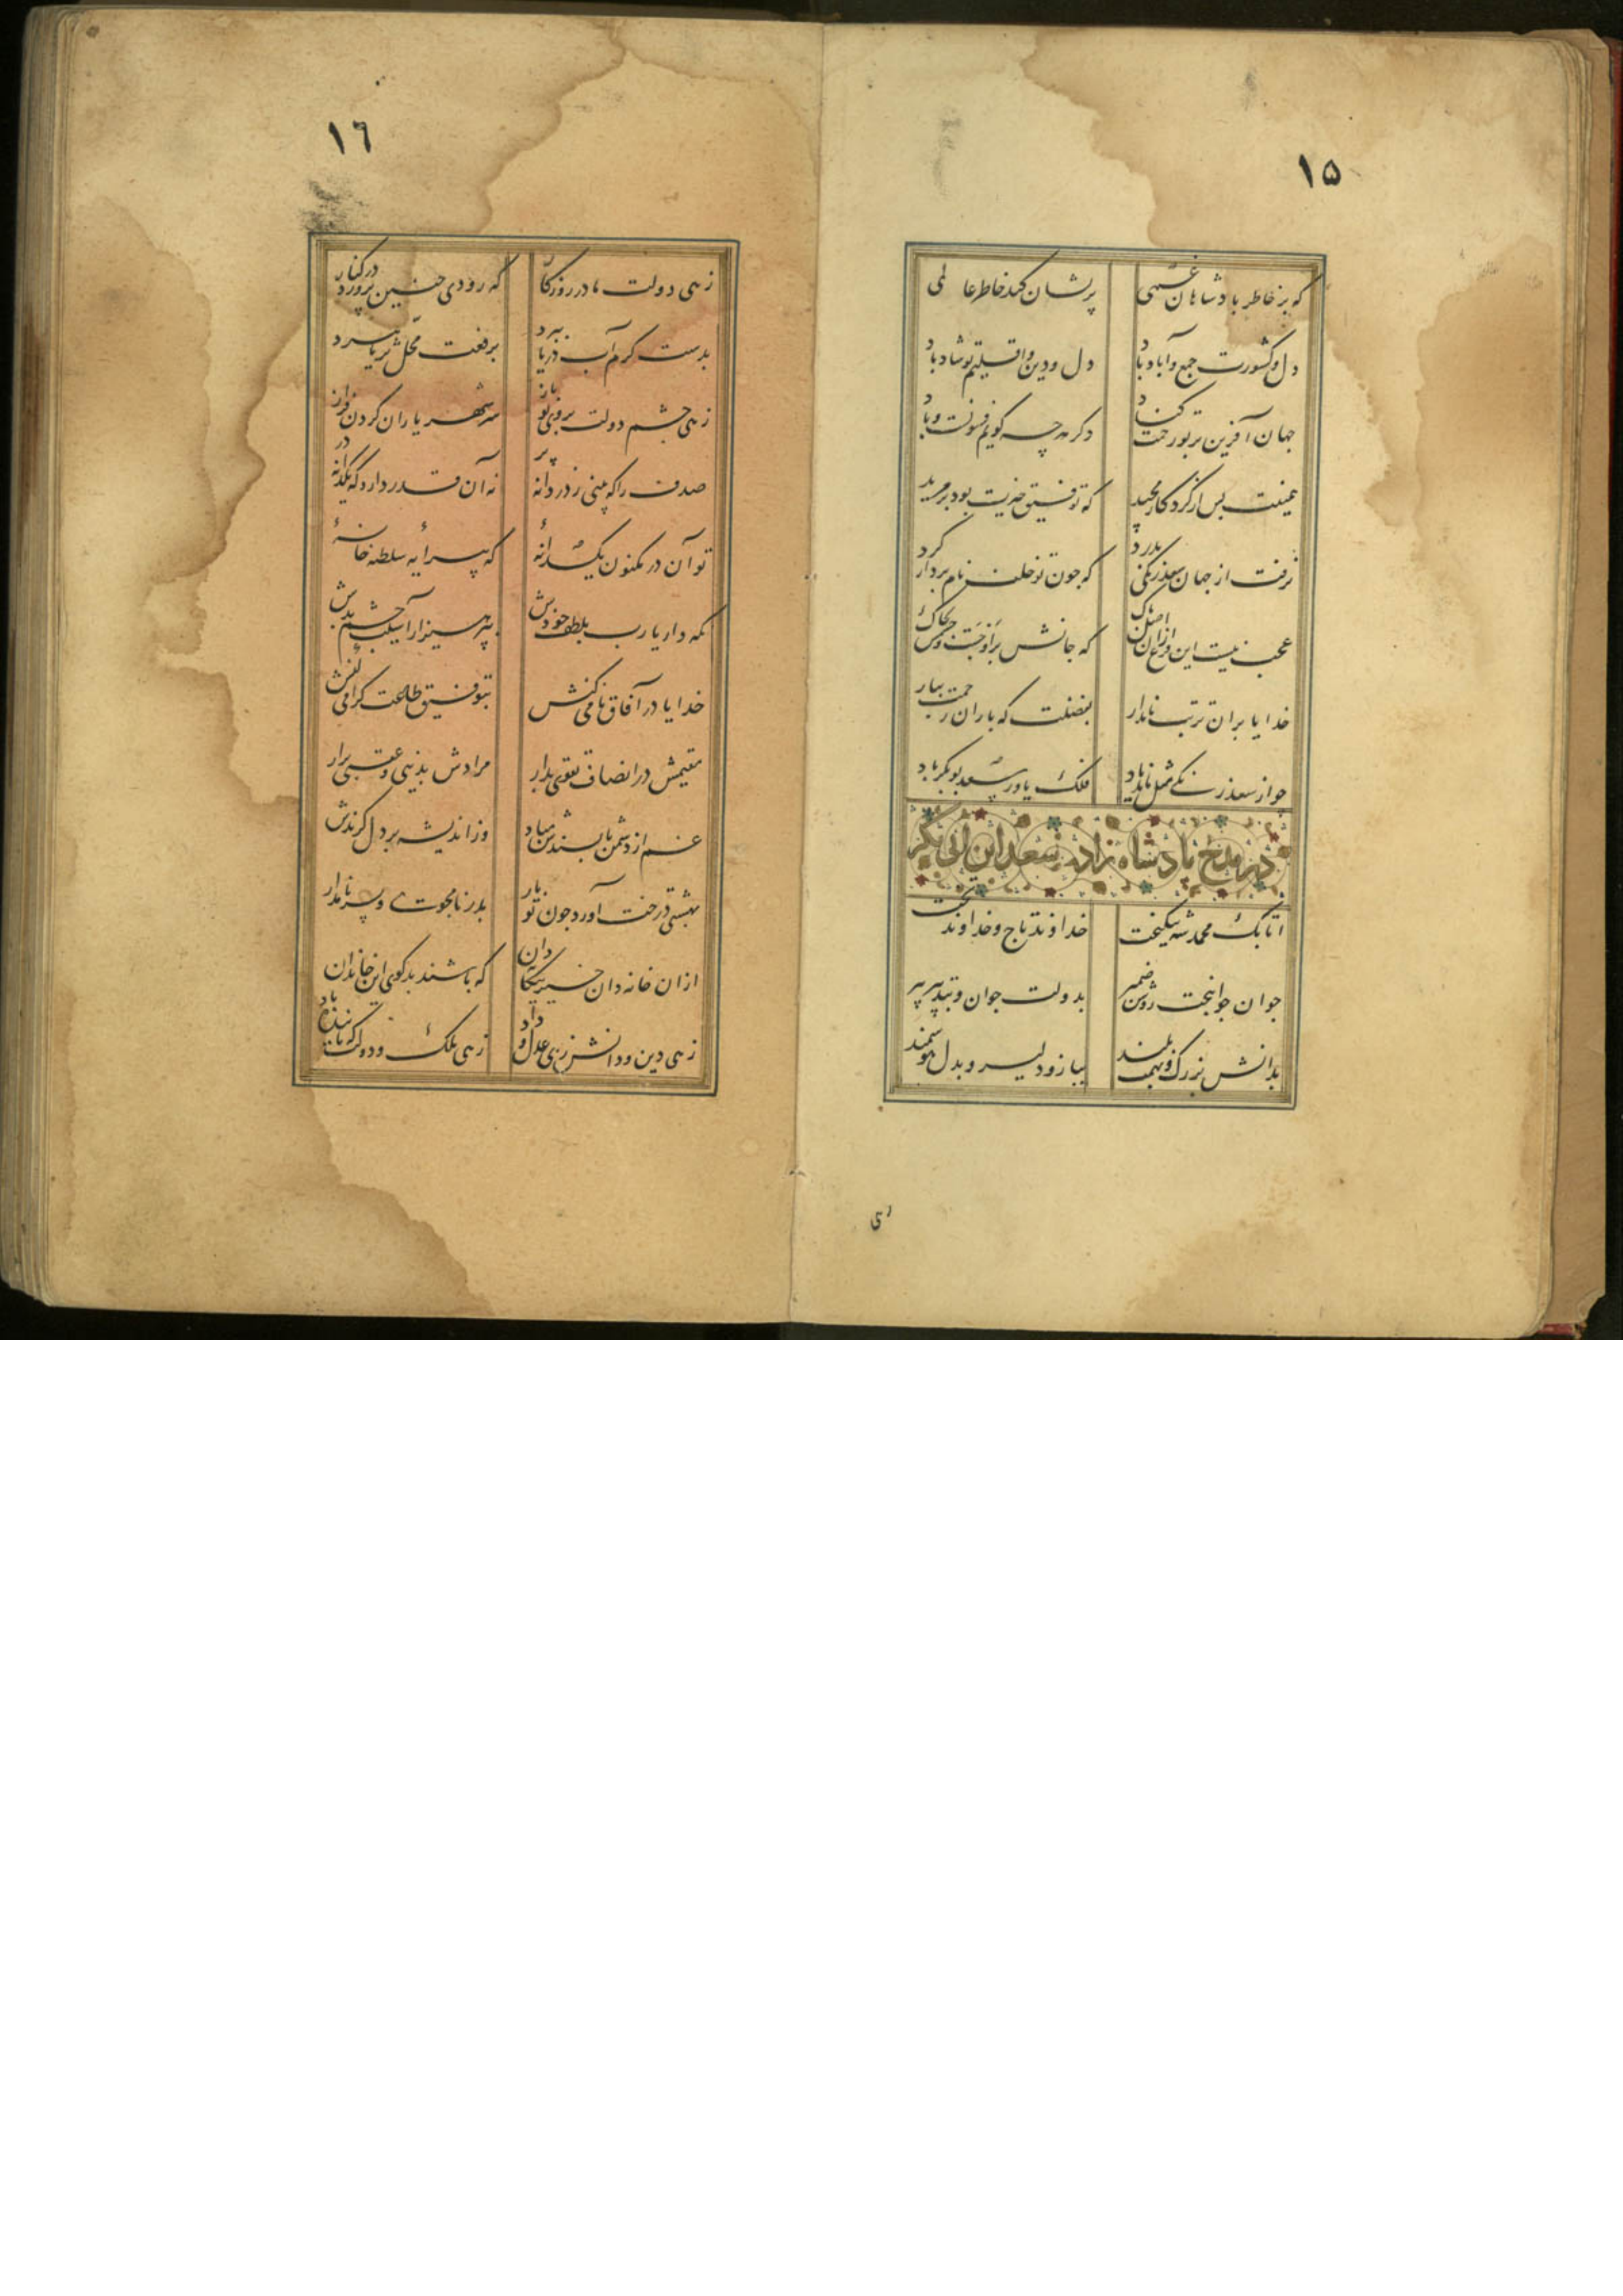 ۱۵
که بر خاطر بادشاهان غمی پریشان کند خاطر عالمی
دل و کشورت جمع و آباد باد دل و دین و اقلیم تو شاد باد
جهان آفرین بر تو رحمت کناد دکر هرچه کویم فسونست و باد
همینت بس از کردکار مجید که توفیق خیرت بود بر مزید
نرفت از جهان سعد زنکی بدرد که جون تو خلف نام بردار کرد
عجب نیست این فرع ازان اصل پاک که جانش بر اوجست و جسمش بخاک
خدایا بران تربت نامدار بفضلت که باران رحمت ببار
جو از سعد زنکی مثل ماند یاد فلک یاور سعد بوبکر باد
در مدح پادشاه زاده سعد ابن ابی بکر
اتابک محمد شه نیکبخت خداوند تاج و خداوند تخت
جوان جوانبخت روشن ضمیر بدولت جوان و بتدبیر پیر
بدانش بزرک و بهمت بلند ببازو دلیر و بدل هوشمند
۱٦
زهی دولت مادر روزکار که رودی جنین پرورد در کنار
بدست کرم آب دریا ببرد برفعت محل ثریا ببرد
زهی جشم دولت بروی تو باز سر شهریاران کردن فراز
صدف را که بینی ز در دانه پر نه آن قدر دارد که یکدانه در
تو آن در مکنون یکدانهٔ که پیرایه سلطنه خانهٔ
نکه دار یارب بلطف خودش بپرهیز از آسیب جشم بدش
خدایا در آفاق نامی کنش بتوفیق طاعت کرامی کنش
مقیمش در انصاف و تقوی بدار مرادش بدنیی و عقبی برار
غم از دشمن ناپسندش مباد وز اندیشه بر دل کزندش
بهشتی درخت آورد جون تو بار بدر نامجوی و پسر نامدار
ازان خانه دان خیر بیکانه دان که باشند بدکوی این خاندان
زهی دین و دانش زهی عدل و داد زهی ملک و دولت که پاینده باد